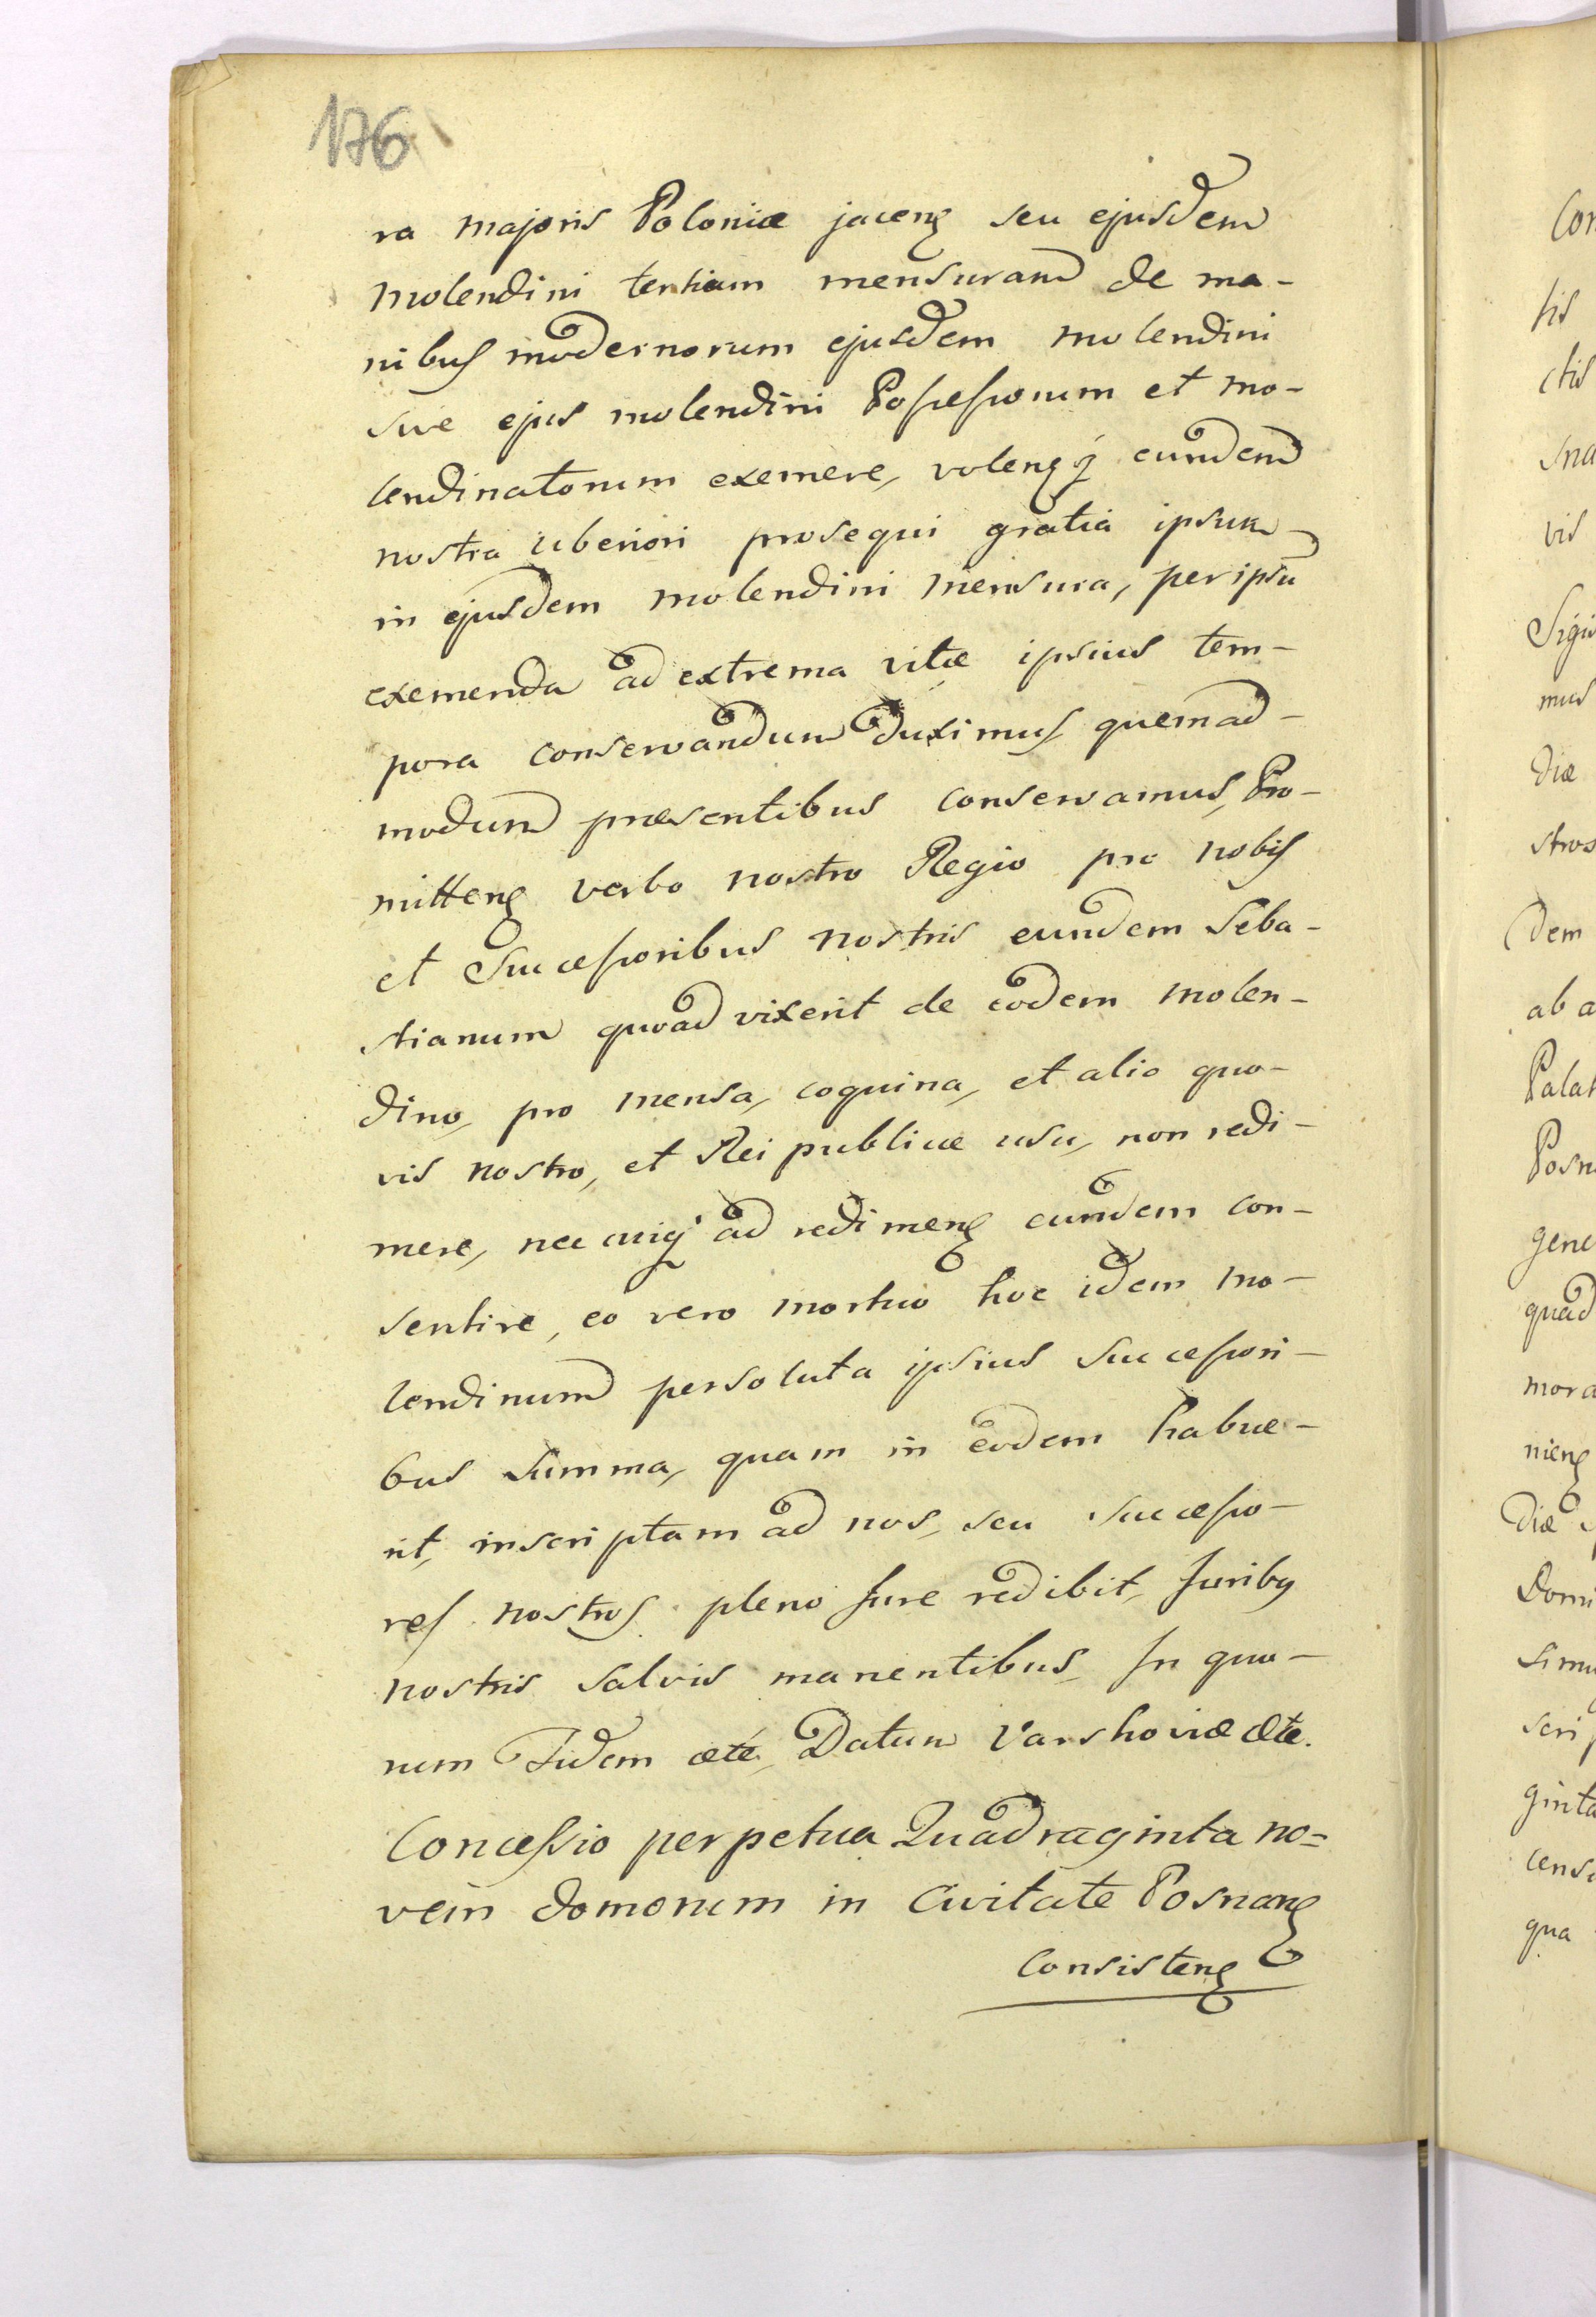 176
ra majoris Poloniæ jacenȝ seu ejusdem
molendini tertiam mensuram de ma-
nibus modernorum ejusdem molendini
sive ejus molendini Possessorum et mo-
lendinatorum exemere, volenȝqȝ eundem
nostra uberiori prosequi gratia ipsum
in ejusdem molendini mensura, per ipsū
exemenda ad extrema vitæ ipsius tem-
pora conservandum duximus quemad-
modum præsentibus conservamus, Pro-
mittenȝ verbo nostro Regio pro nobis
et Successoribus nostris eundem Seba-
stianum quoad vixerit de eodem molen-
dino, pro mensa, coquina, et alio quo-
vis nostro, et Rei publicæ usu, non redi-
mere, nec cuiqȝ ad redimenȝ eundem con-
sentire, eo vero mortuo hoc idem mo-
lendinum persoluta ipsius successori-
bus summa, quam in eodem habue-
rit, inscriptam ad nos, seu successo-
res nostros pleno Jure redibit, Juribȝ
nostris salvis manentibus, In quo-
rum Fidem ætć, Datum Varshoviæ ætc.
Concessio perpetua Quadraginta no=
vem domorum in Civitate Posnanȝ
Consistenȝ